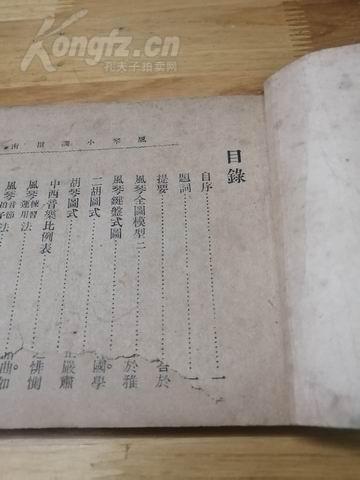 Kongfz.cn
孔夫子拍卖网
風琴小調指南
目錄
自序 一
題詞 一
提要
風琴全圖模型二
風琴鍵盤式圖
二胡圖式
胡琴圖式
中西音樂比例表
風琴練習運用法
風琴音節拍子法
於
於雅
國學
嚴肅
悱惻
曲如